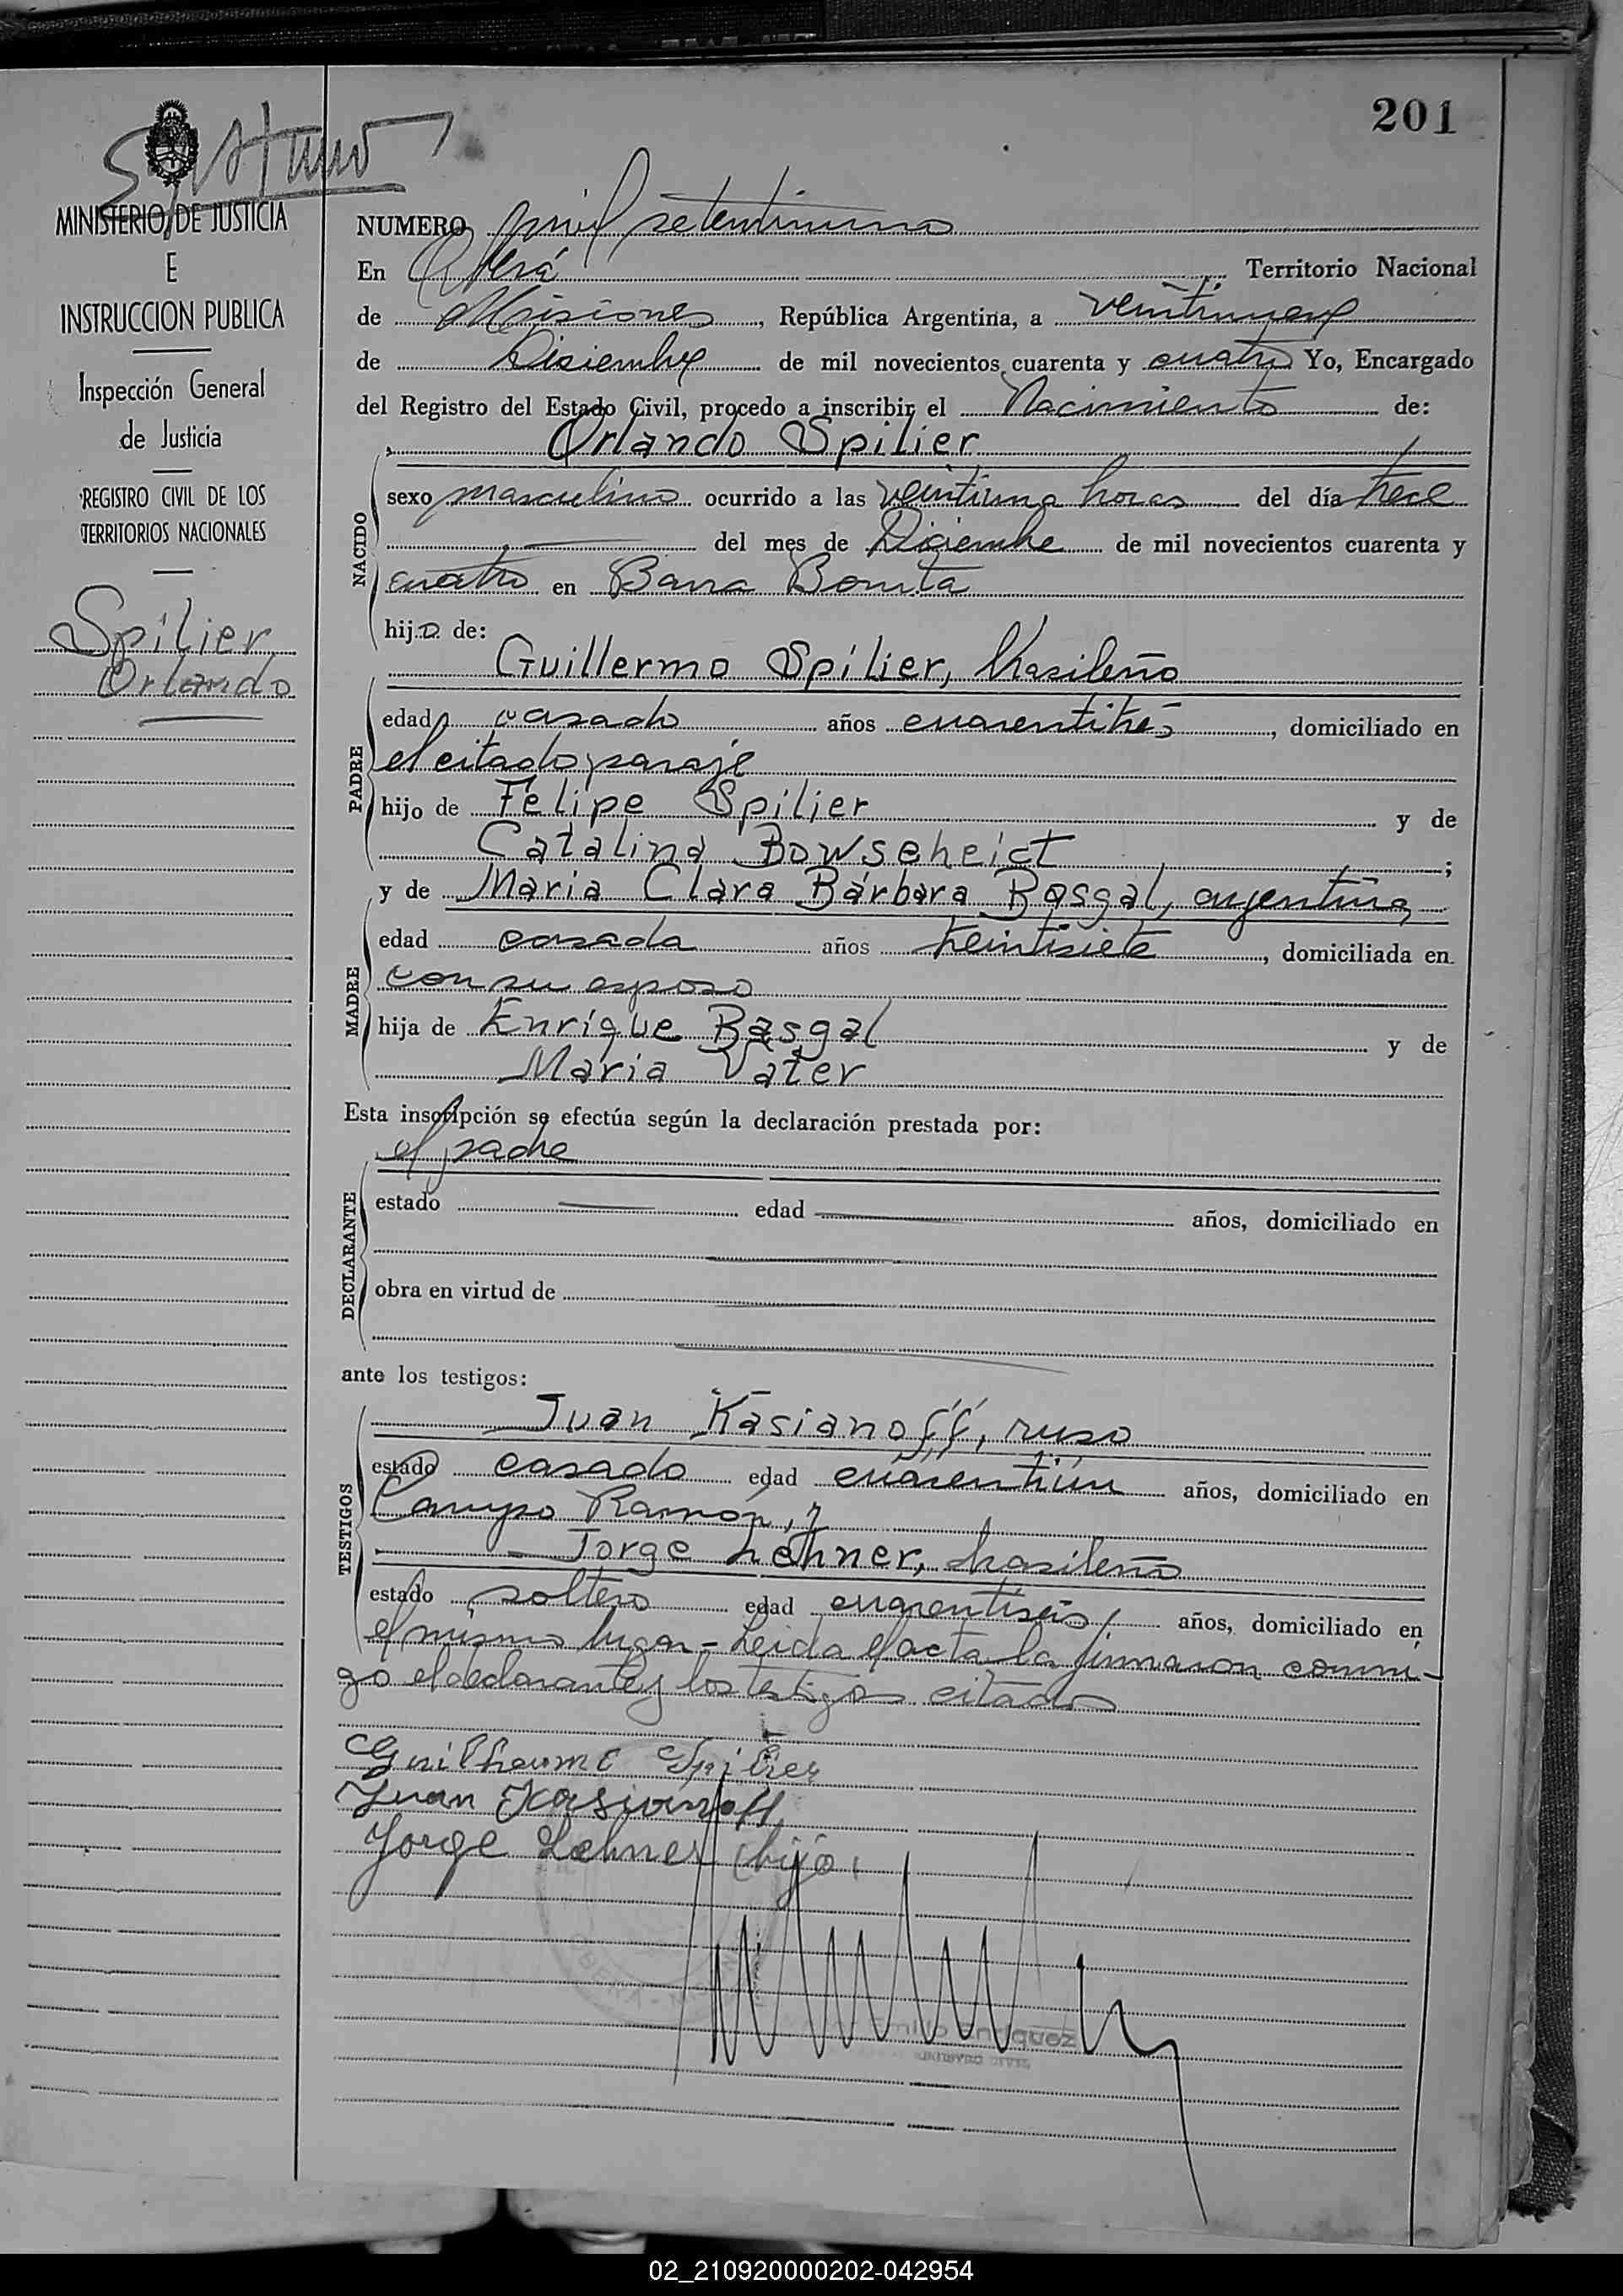 201
MINISTERIO DE JUSTICIA
E
INSTRUCCION PUBLICA
Inspección General
de Justicia
REGISTRO CIVIL DE LOS
TERRITORIOS NACIONALES
Spilier
Orlando
NUMERO mil setentiuno
En Oberá Territorio Nacional
de Misiones, República Argentina, a veintinueve
de Disiembre de mil novecientos cuarenta y cuatro Yo, Encargado
del Registro del Estado Civil, procedo a inscribir el Nacimiento de:
Orlando Spilier
NACIDO
sexo masculino ocurrido a las veintiuna horas del día trece
del mes de Diciembre de mil novecientos cuarenta y
cuatro en Barra Bonita
hijo de:
Guillermo Spilier, brasileño
PADRE
edad casado años cuarentitrés, domiciliado en
el citado paraje
hijo de Felipe Spilier y de
Catalina Bowseheict;
y de Maria Clara Bárbara Basgal, argentina,
MADRE
edad casada años treintisiete, domiciliada en
con su esposo
hija de Enrique Basgal y de
Maria Vater
Esta inscripción se efectúa según la declaración prestada por:
el padre
DECLARANTE
estado edad años, domiciliado en
obra en virtud de
ante los testigos:
TESTIGOS
Juan Kasianoff, ruso
estado casado edad cuarentiún años, domiciliado en
Campo Ramón, y
Jorge Lehner, brasileño
estado soltero edad cuarentiseis años, domiciliado en
el mismo lugar - Leida el acta la firmaron conmi-
go el declarante y los testigos citados
Guilherme Spilier
Juan Kasianoff
Jorge Lehner (hijo)
02_210920000202-042954